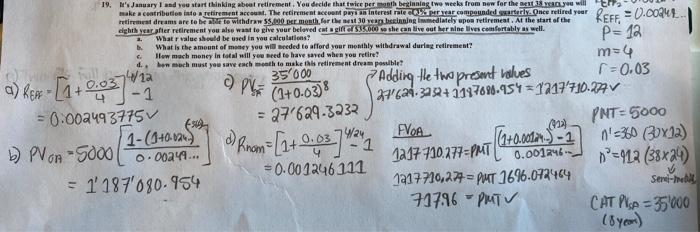 19. It's January 1 and you start thinking about retirement. You decide that twice per month beginning two weeks from now for the next 38 years you will
make a contribution into a retirement account. The retirement account pays an interest rate of 3% per year compounded quarterly. Once retired your
retirement dreams are to be able to withdraw $5,000 per month for the next 30 years beginning immediately upon retirement. At the start of the
eighth year after retirement you also want to give your beloved cat a gift of $35,000 so she can live out her nine lives comfortably as well.
a. What r value should be used in you calculations?
b. What is the amount of money you will needed to afford your monthly withdrawal during retirement?
c. How much money in total will you need to have saved when you retire?
d. how much must you save each month to make this retirement dream possible?
REFF = 0.00249...
P = 12
m=4
r=0.03
a) REFF = [1+ 0.03/4]^4/12 - 1
= 0.002493775 ✓
b) PVOA = 5000 [1-(1+0.024..)^(-360) / 0.00249...]
= 1'187'080.954
c) PV = 35'000 / (1+0.03)^8
= 27'629.3232
Adding the two present values
27'629.3232 + 1187080.954 = 1'217'710.277 ✓
d) Rnom = [1+ 0.03/4]^4/24 - 1
= 0.001246111
FVOA
1217710.277 = PMT [(1+0.00124...)^(912) - 1 / 0.001246...]
1217710,277 = PMT 1696.072464
717.96 = PMT ✓
PMT = 5000
n' = 360 (30x12)
n² = 912 (38x24)
CAT PVSP = 35'000
(8 years)